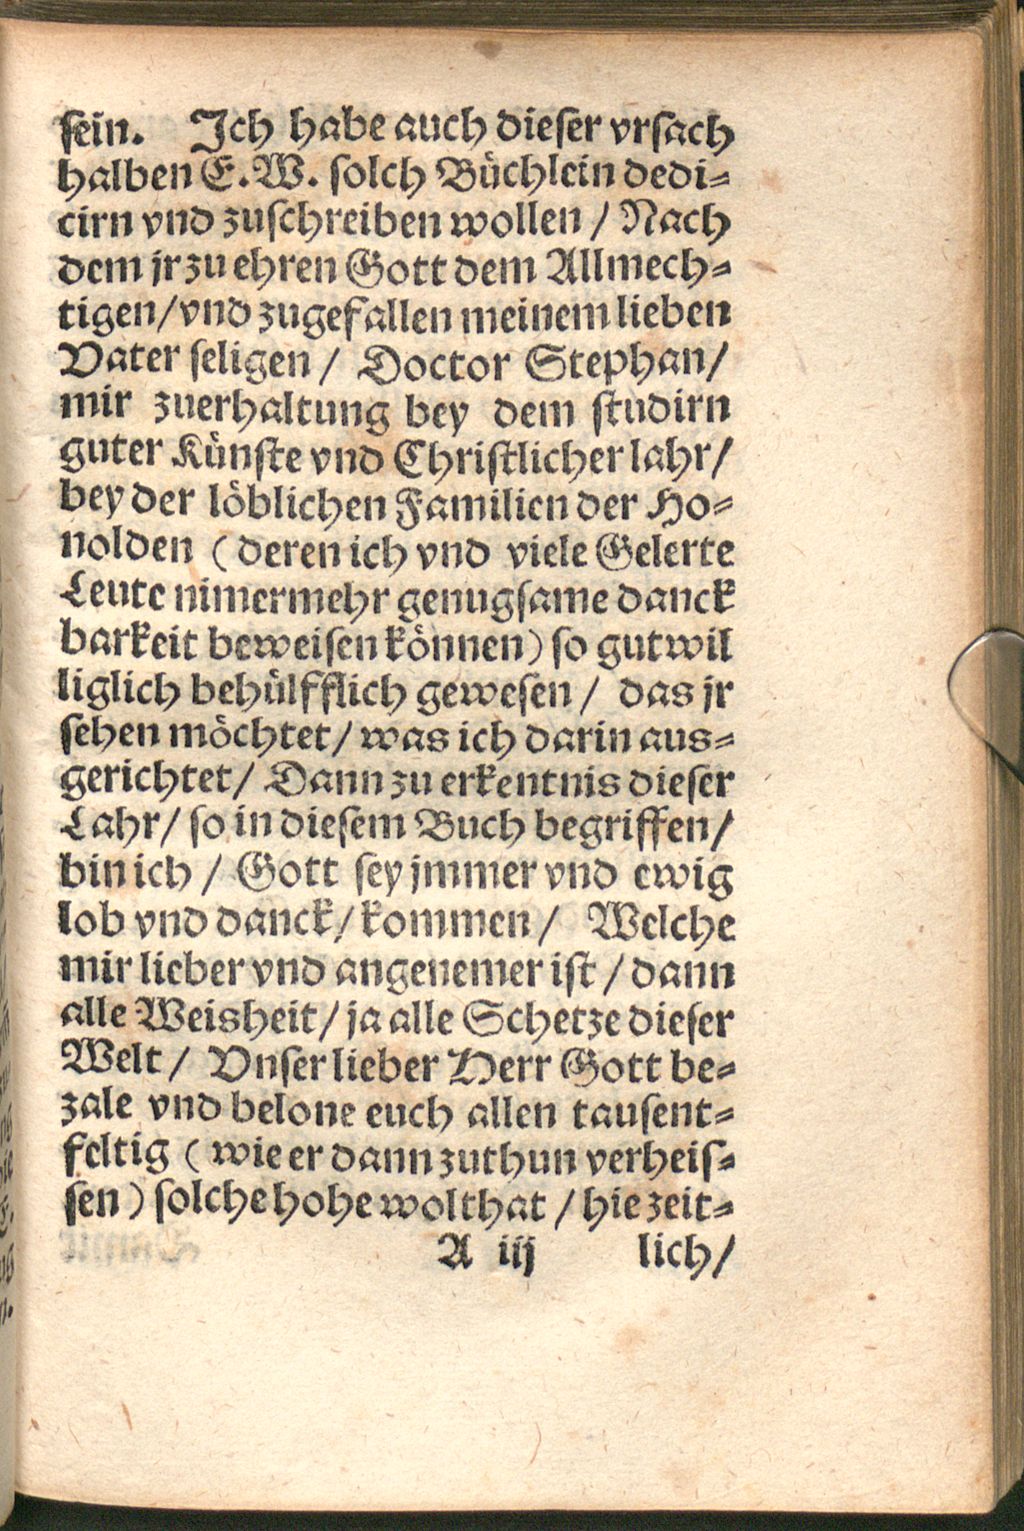 sein. Ich habe auch dieser vrsach
halben E. W. solch Büchlein dedi-
cirn vnd zuschreiben wollen / Nach
dem jr zu ehren Gott dem Allmech-
tigen/vnd zugefallen meinem lieben
Vater seligen / Doctor Stephan/
mir zuerhaltung bey dem studirn
guter Künste vnd Christlicher lahr/
bey der löblichen Familien der Ho-
nolden (deren ich vnd viele Gelerte
Leute nimermehr genugsame danck
barkeit beweisen können) so gutwil
liglich behülfflich gewesen / das jr
sehen möchtet / was ich darin aus-
gerichtet/ Dann zu erkentnis dieser
Lahr/ so in diesem Buch begriffen/
bin ich / Gott sey jmmer vnd ewig
lob vnd danck/ kommen / Welche
mir lieber vnd angenemer ist / dann
alle Weisheit/ ja alle Schetze dieser
Welt / Vnser lieber Herr Gott be-
zale vnd belone euch allen tausent-
feltig (wie er dann zuthun verheis-
sen) solche hohe wolthat / hie zeit-
A iij lich/